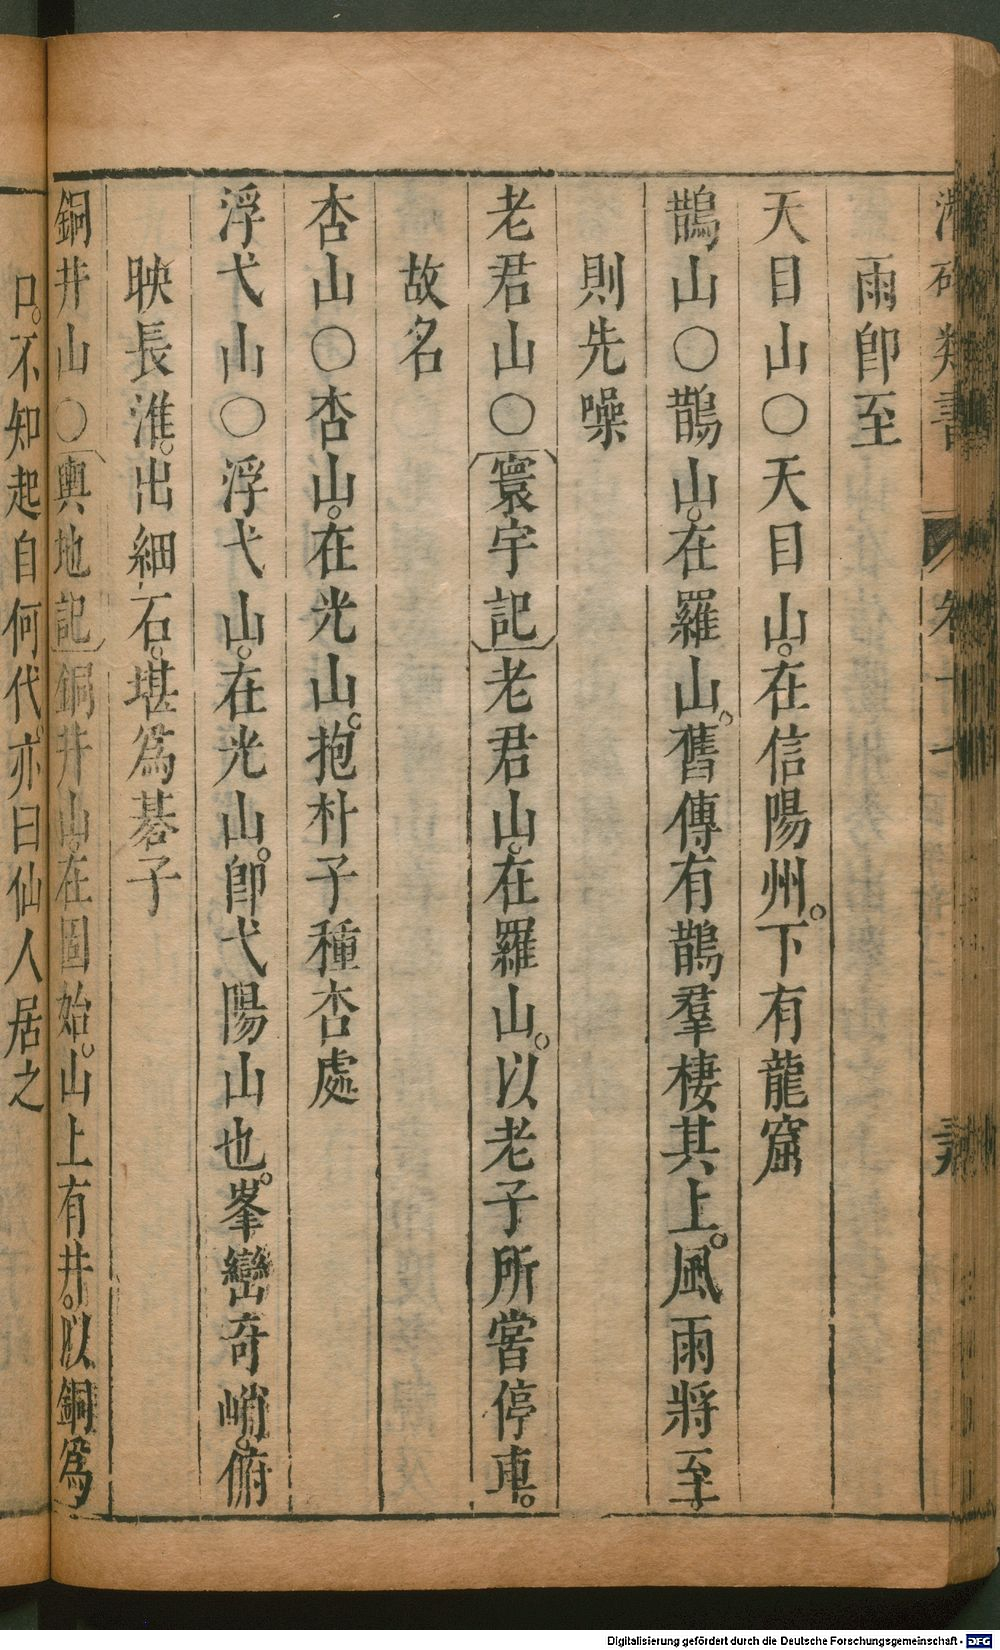 類書
雨卽至
天目山〇天目山。在信陽州。下有龍窟
鵲山〇鵲山。在羅山。舊傳有鵲羣棲其上。風雨將至
則先噪
老君山〇寰宇記老君山。在羅山。以老子所嘗停車。
故名
杏山〇杏山。在光山。抱朴子種杏處
浮弋山〇浮弋山。在光山。卽弋陽山也。峯巒奇峭。俯
映長淮。出細石。堪爲碁子
銅井山〇輿地記銅井山。在固始。山上有井。以銅爲
口。不知起自何代。亦曰仙人居之
Digitalisierung gefördert durch die Deutsche Forschungsgemeinschaft - DFG